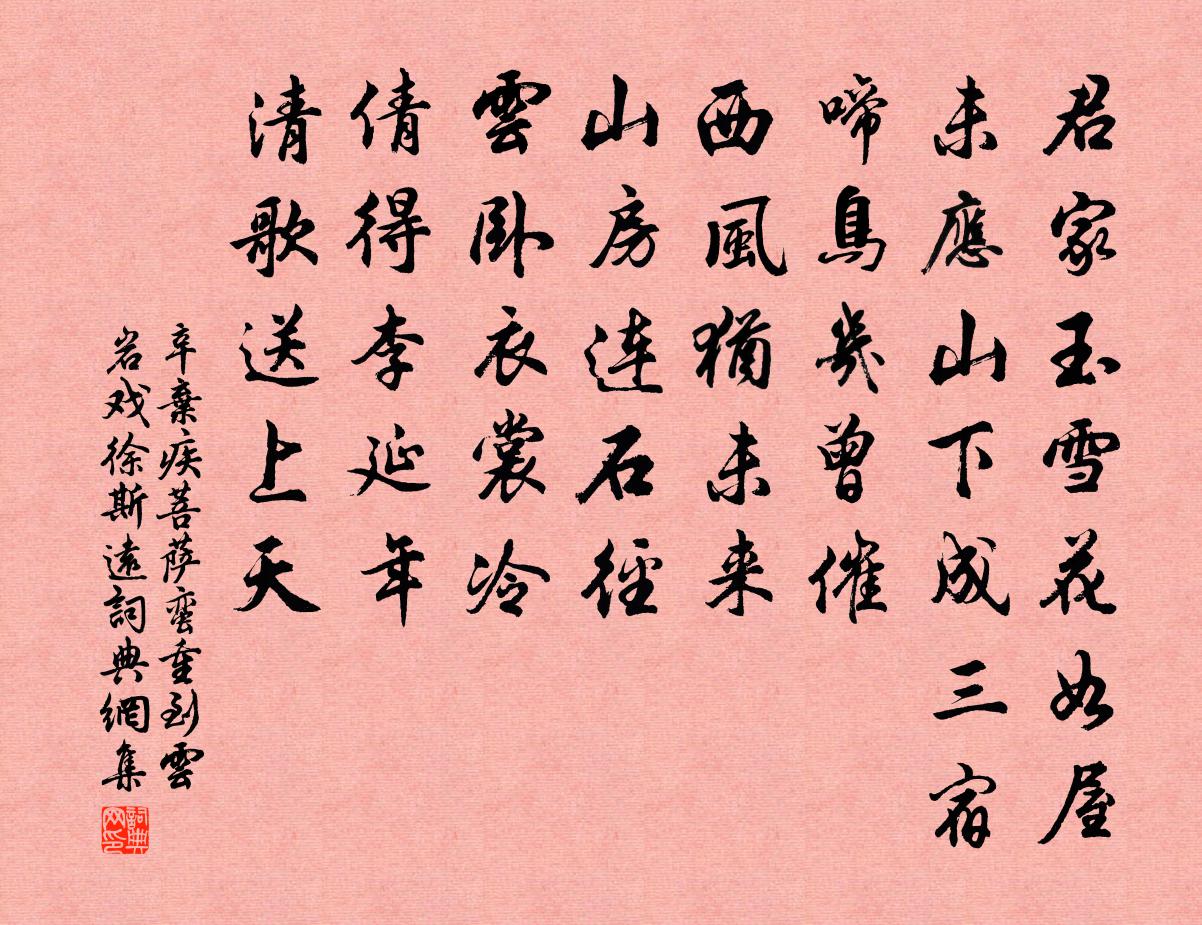 君家玉雪花如屋
未應山下成三宿
啼鳥幾曾催
西風猶未来
山房連石徑
雲卧衣裳冷
倩得李延年
清歌送上天
辛棄疾菩萨蛮重到雲
岩戏徐斯遠詞典網集
詞典
网印